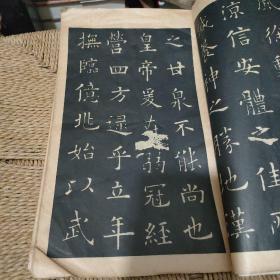 徐
涼信安體之佳
養神之勝地漢
之甘泉不能尚也
皇帝爰在弱冠經
營四方逮乎立年
撫臨億兆始以武